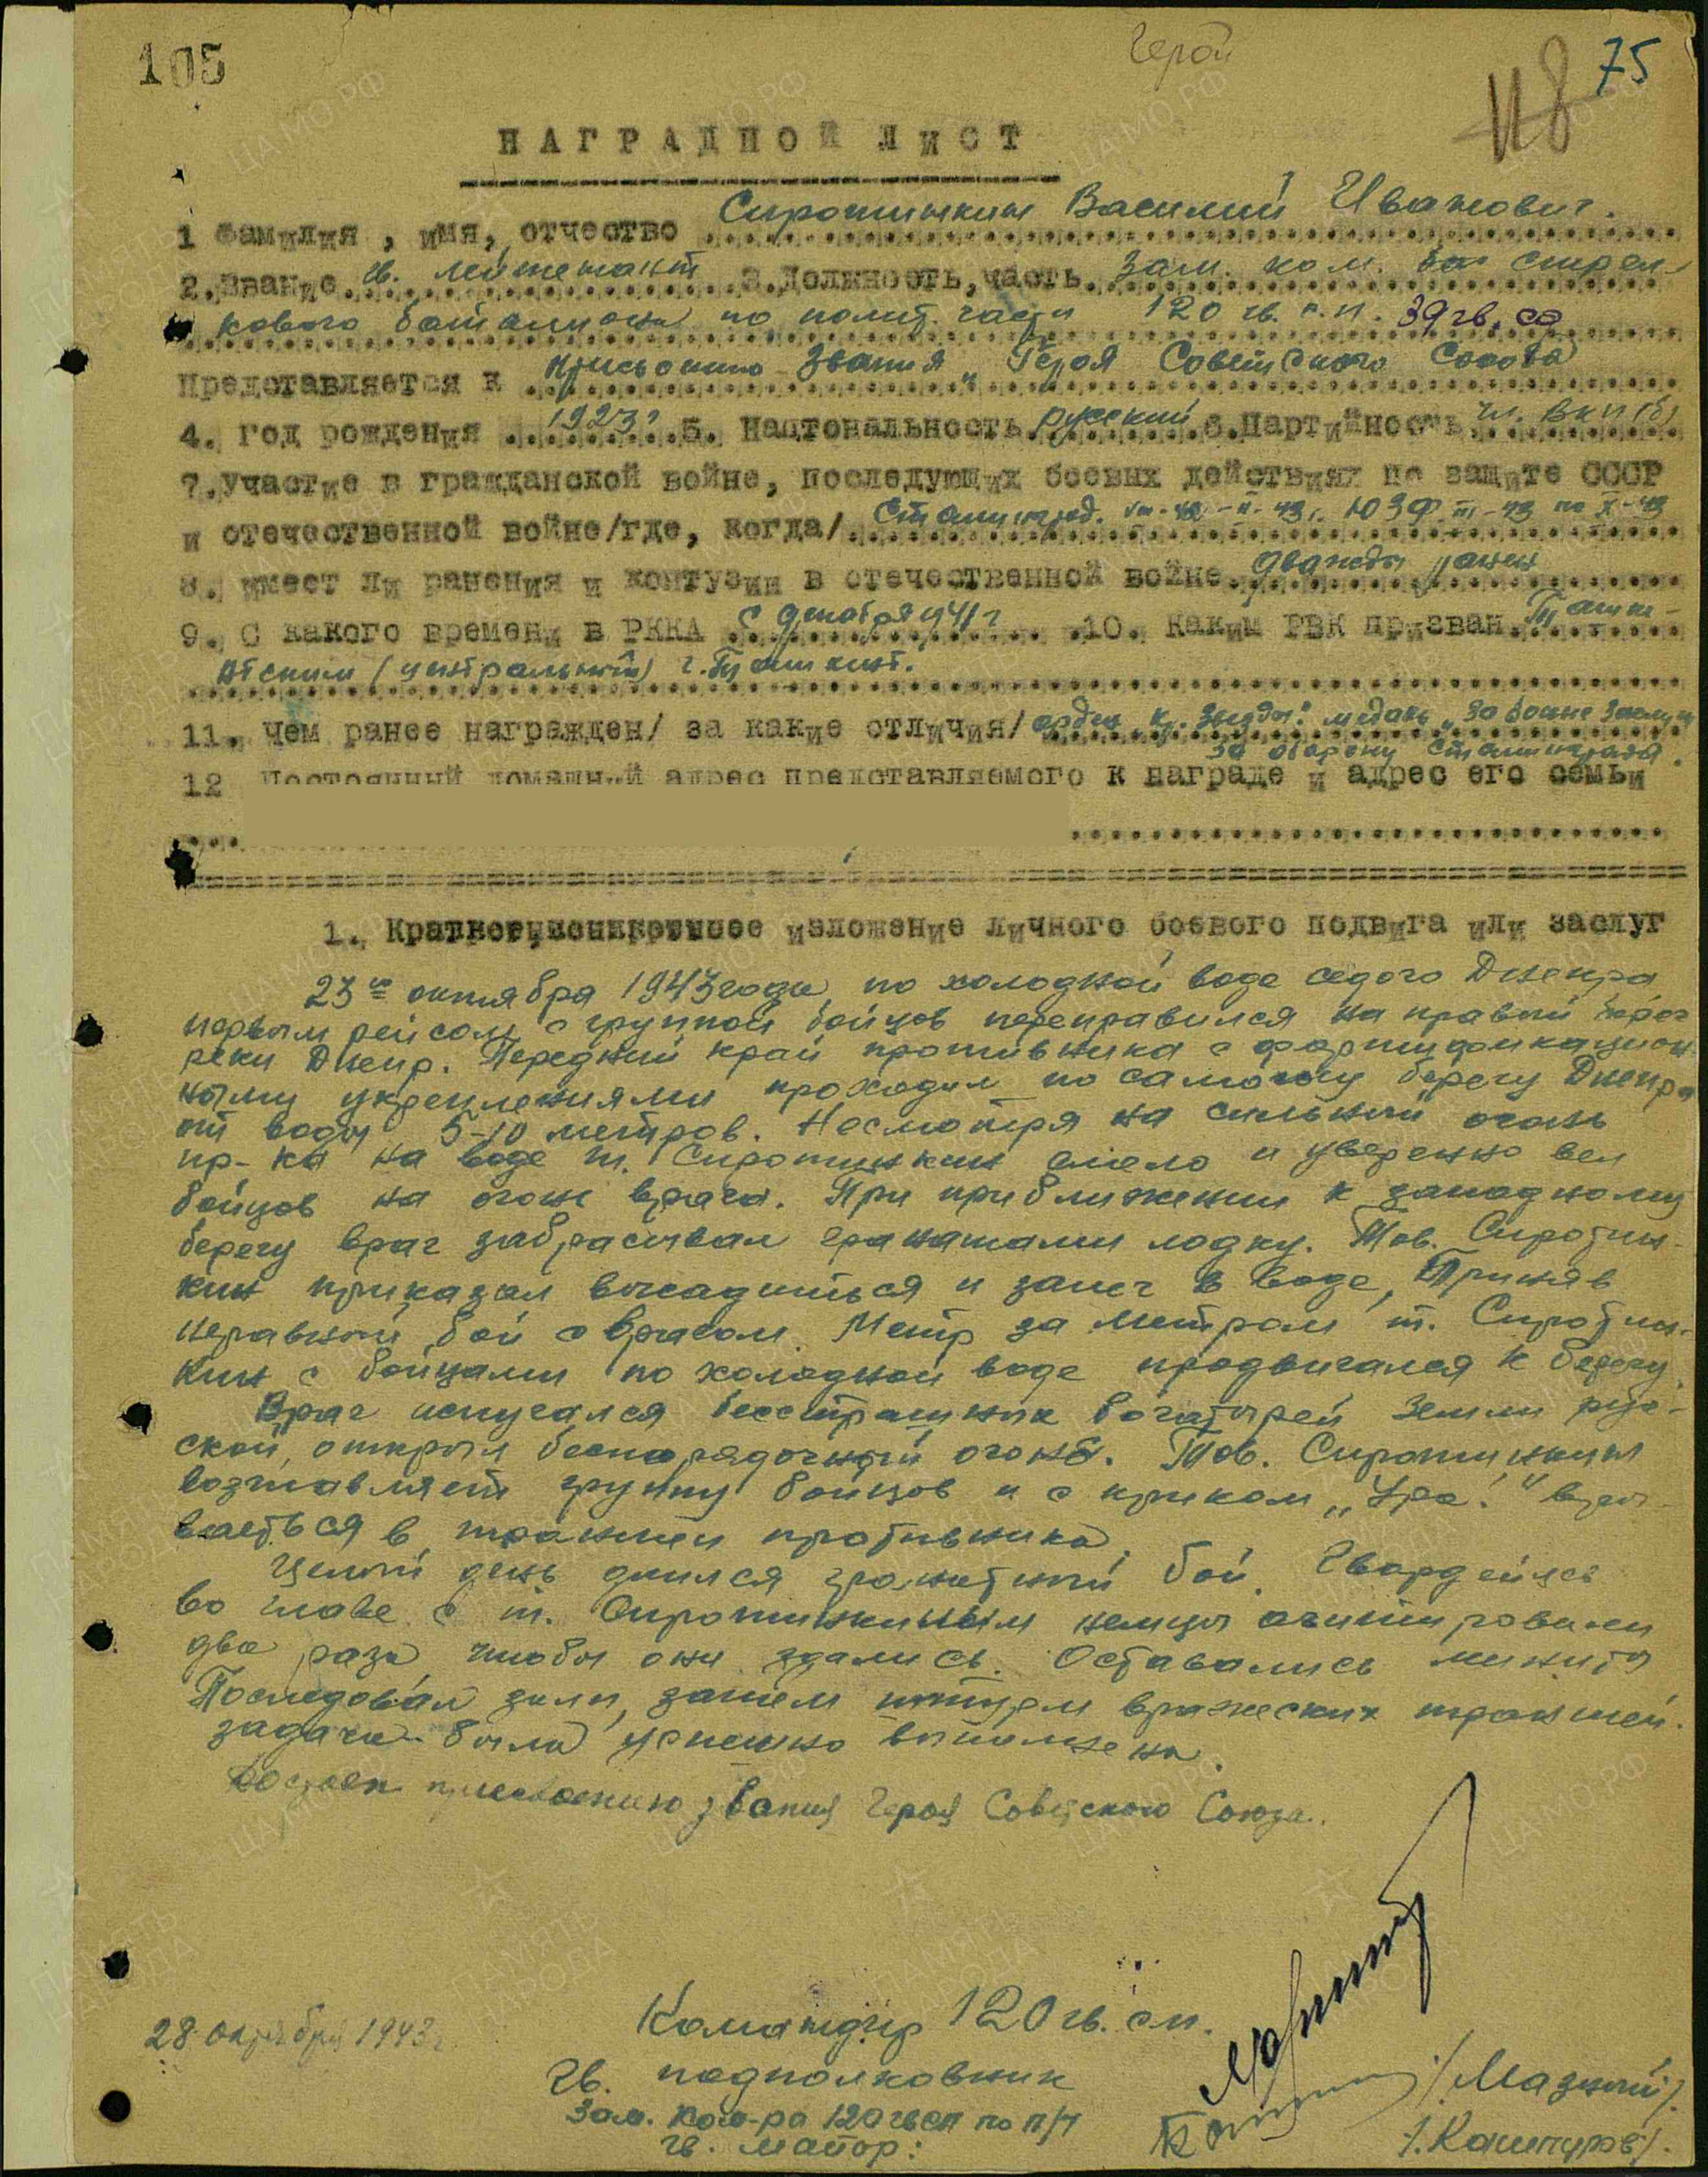 105
Герой
118
75
НАГРАДНОЙ ЛИСТ
1 Фамилия, имя, отчество Сиротинкин Василий Иванович.
2. Звание гв. лейтенант 3. Должность, часть зам. ком. стрел-
кового батальона по полит. части 120 гв. с.п. 39 гв. сд
Представляется к присвоению звания „Героя Советского Союза
4. год рождения 1923 г 5. Национальность русский 6. Партийность чл. ВКП(б)
7. участие в гражданской войне, последующих боевых действиях по защите СССР
и отечественной войне/где, когда/ Сталинград. VIII-42-II-43г. ЮЗФ III-43 по X-43
8. имеет ли ранения и контузии в отечественной войне дважды ранен
9. С какого времени в РККА с декабря 1941 г 10. каким РВК призван Ташке-
нтским (центральный) г. Ташкент.
11. Чем ранее награжден/ за какие отличия/ орден „Кр. Звезды" медаль „За боевые заслуги
за оборону Сталинграда.
12 Постоянный домашний адрес представляемого к награде и адрес его семьи
1. Краткое, конкретное изложение личного боевого подвига или заслуг
23го октября 1943 года по холодной воде седого Днепра
первым рейсом с группой бойцов переправился на правый берег
реки Днепр. Передний край противника с фортификацион-
ными укреплениями проходил по самому берегу Днепра
от воды 5-10 метров. Несмотря на сильный огонь
пр-ка на воде т. Сиротинкин смело и уверенно вел
бойцов на огонь врага. При приближении к западному
берегу враг забрасывал гранатами лодку. Тов. Сиротин-
кин приказал высадиться и залег в воде, Приняв
неравный бой с врагом. Метр за метром т. Сиротин-
кин с бойцами по холодной воде продвигался к берегу.
Враг испугался бесстрашных богатырей земли рус-
ской, открыл беспорядочный огонь. Тов. Сиротинкин
возглавляет группу бойцов и с криком „Ура!" вры-
вается в траншеи противника.
Целый день длился гранатный бой. Гвардейцев
во главе с т. Сиротинкиным немцы агитировали
два раза, чтобы они здались. Оставались минуты
Последовал залп, затем штурм вражеских траншей.
задача была успешно выполнена.
Достоин присвоению звания Героя Советского Союза.
28 октября 1943 г.
Командир 120 гв. с.п.
гв. подполковник /Мазный/.
Зам. Ком-ра 120 гвсп по п/ч
гв. майор: /. Кашпуров/.